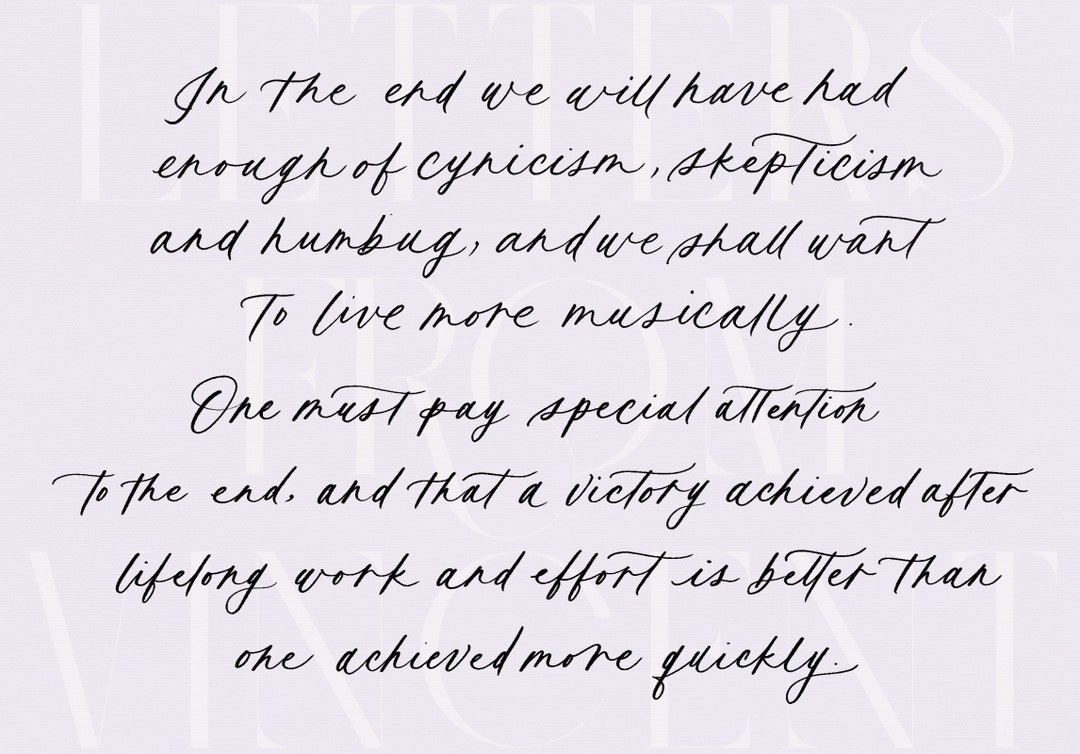 LETTERS
In the end we will have had
enough of cynicism, skepticism
and humbug, and we shall want
To live more musically.
One must pay special attention
to the end, and that a victory achieved after
lifelong work and effort is better than
one achieved more quickly.
FROM
VINCENT